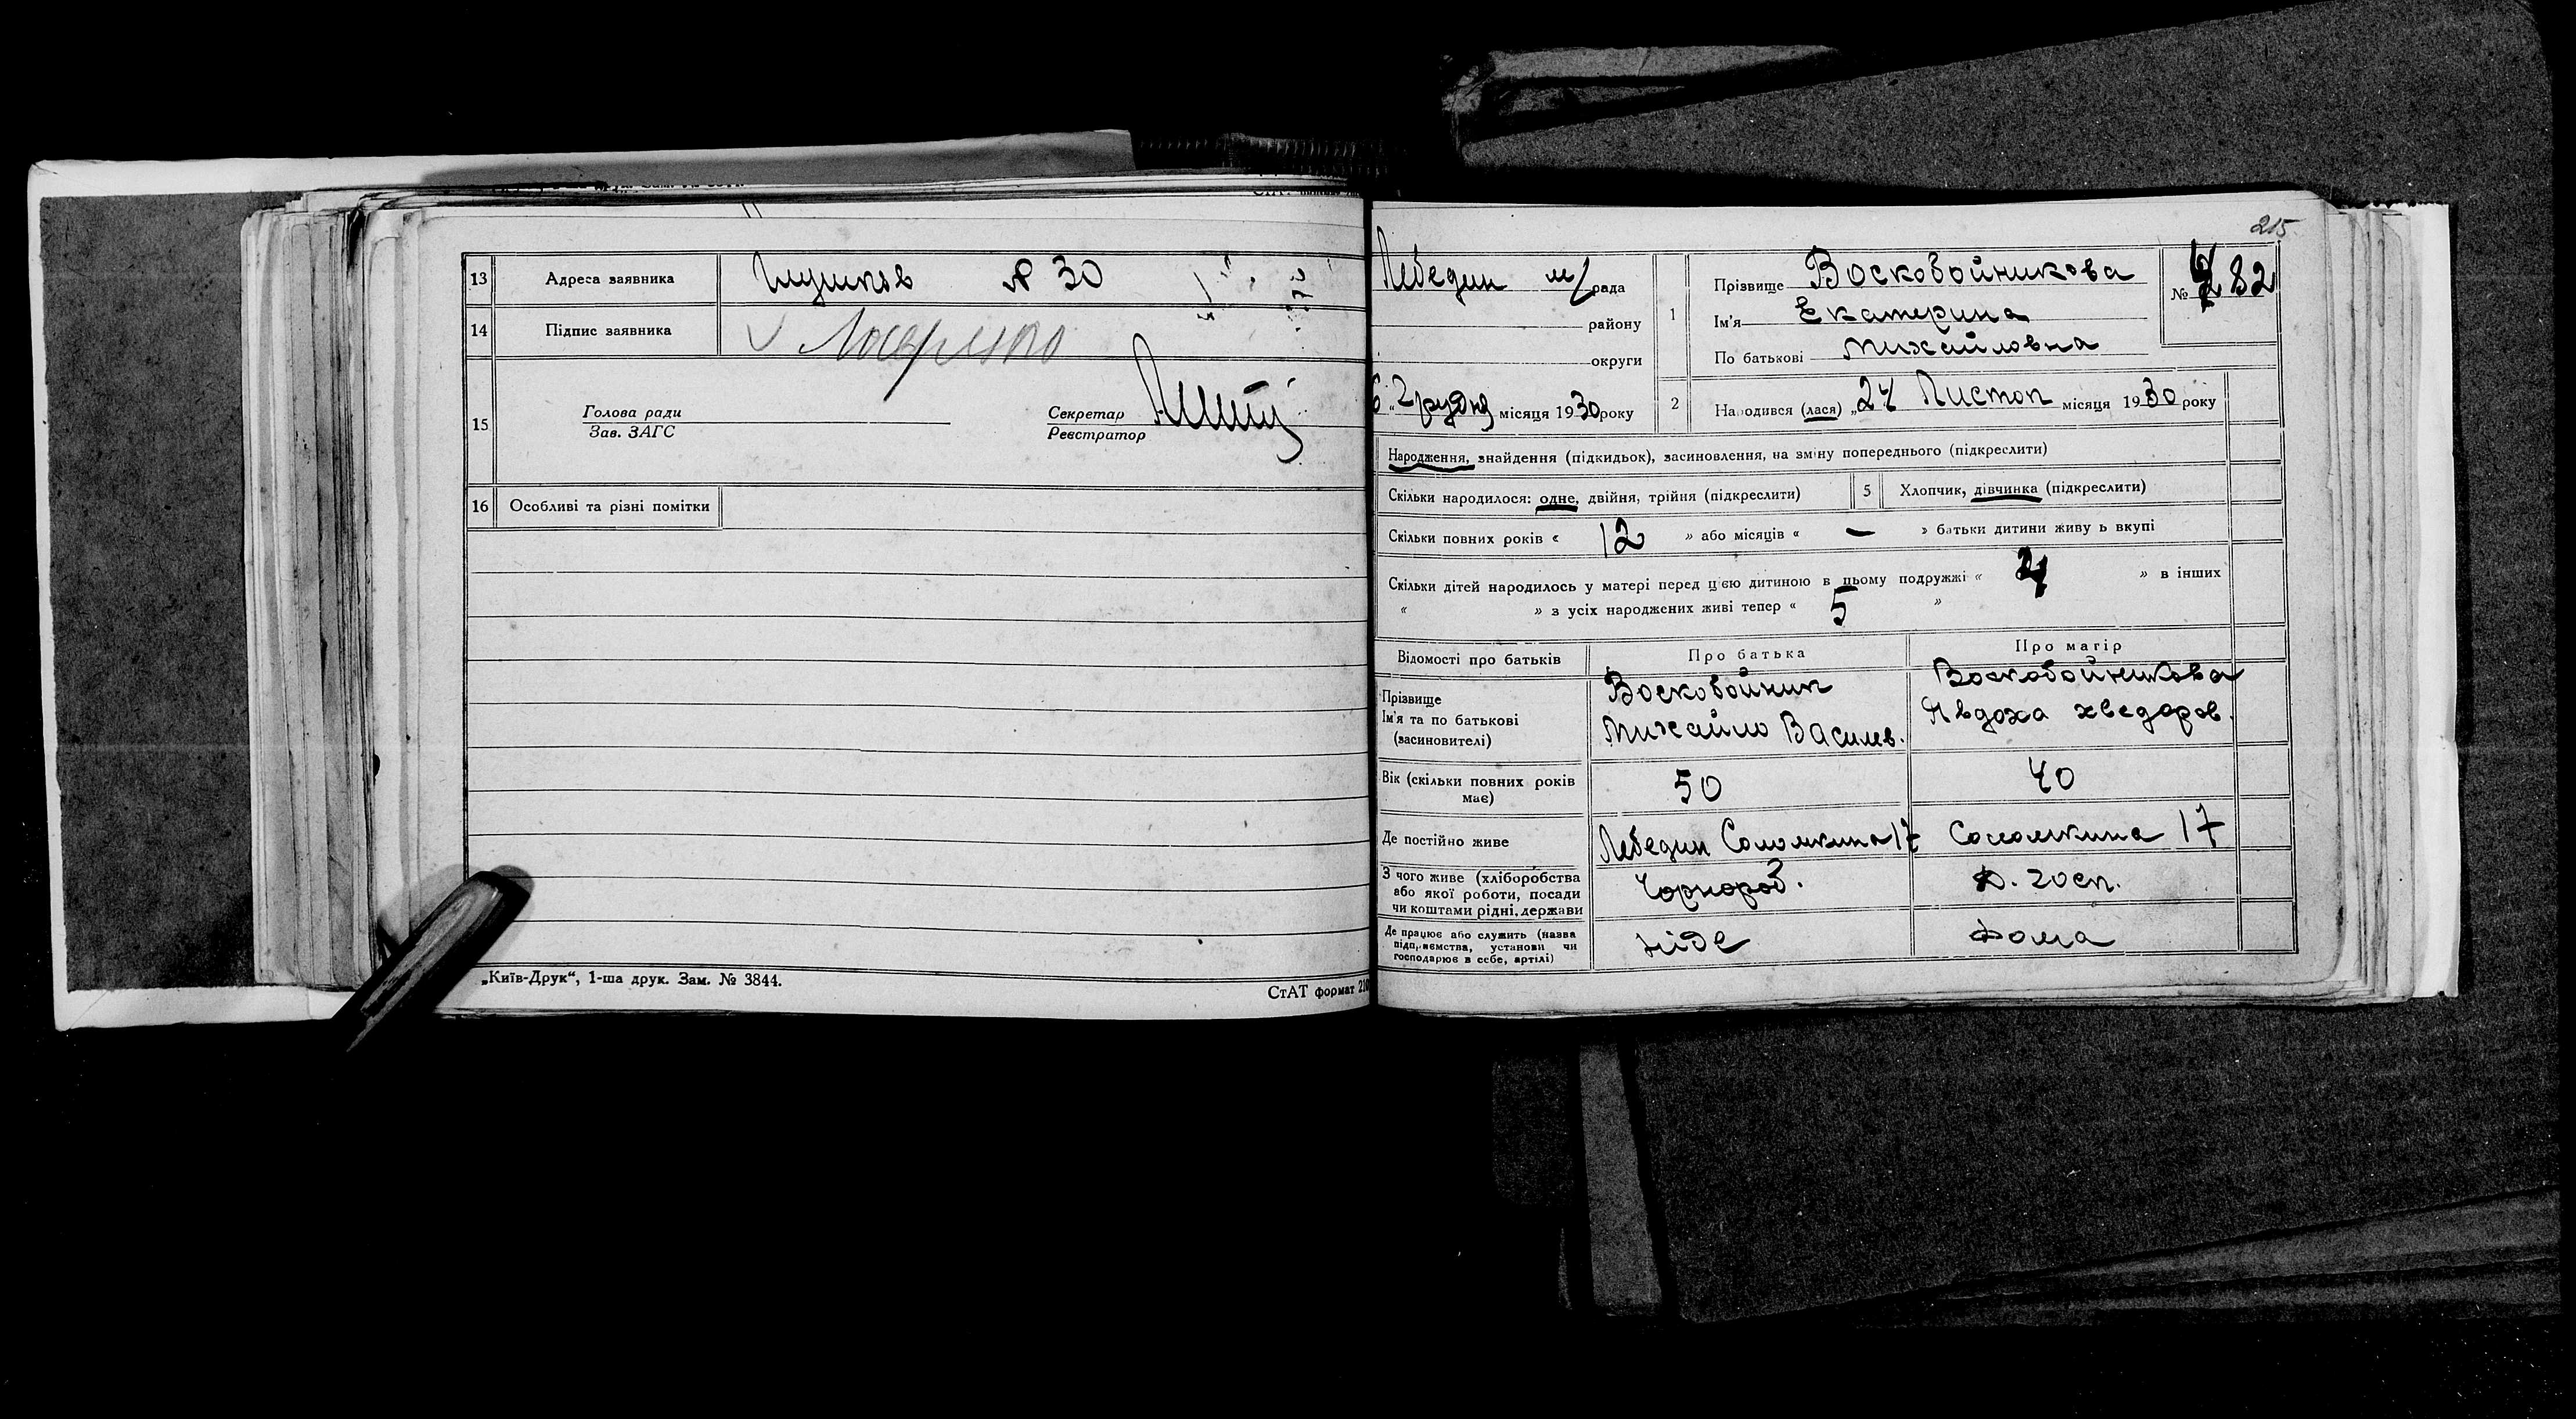 13 Адреса заявника № 30
14 Підпис заявника
15 Голова ради
Зав. ЗАГС
Секретар
Реєстратор
16 Особливі та різні помітки
„Київ-Друк“, 1-ша друк. Зам. № 3844.
СтАТ формат
215
Лебедин м/рада
району
округи
6 „ грудня місяця 1930 року
1 Прізвище Восковойникова
Ім'я Екатерина
По батькові Михайловна
№ 282
2 Народився (лася) „ Листоп місяця 1930 року
Народження, знайдення (підкидьок), засиновлення, на зміну попереднього (підкреслити)
Скільки народилося: одне, двійня, трійня (підкреслити) 5 Хлопчик, дівчинка (підкреслити)
Скільки повних років « 12 » або місяців « — » батьки дитини живу ь вкупі
Скільки дітей народилось у матері перед цією дитиною в цьому подружжі « 4 » в інших
« » з усіх народжених живі тепер « 5 »
Відомості про батьків Про батька Про матір
Прізвище
Ім'я та по батькові
(засиновителі)
Восковойник
Михайло Василев.
Воскобойникова
Явдоха Хведоров.
Вік (скільки повних років має) 50 40
Де постійно живе Лебедин Соломкина 17 Соломкина 17
З чого живе (хліборобства
або якої роботи, посади
чи коштами рідні, держави
Чорнороб. Д. госп.
Де працює або служить (назва
підприємства, установи чи
господарює в себе, артілі)
ніде дома